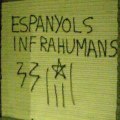 ESPANYOLS
INFRAHUMANS
33